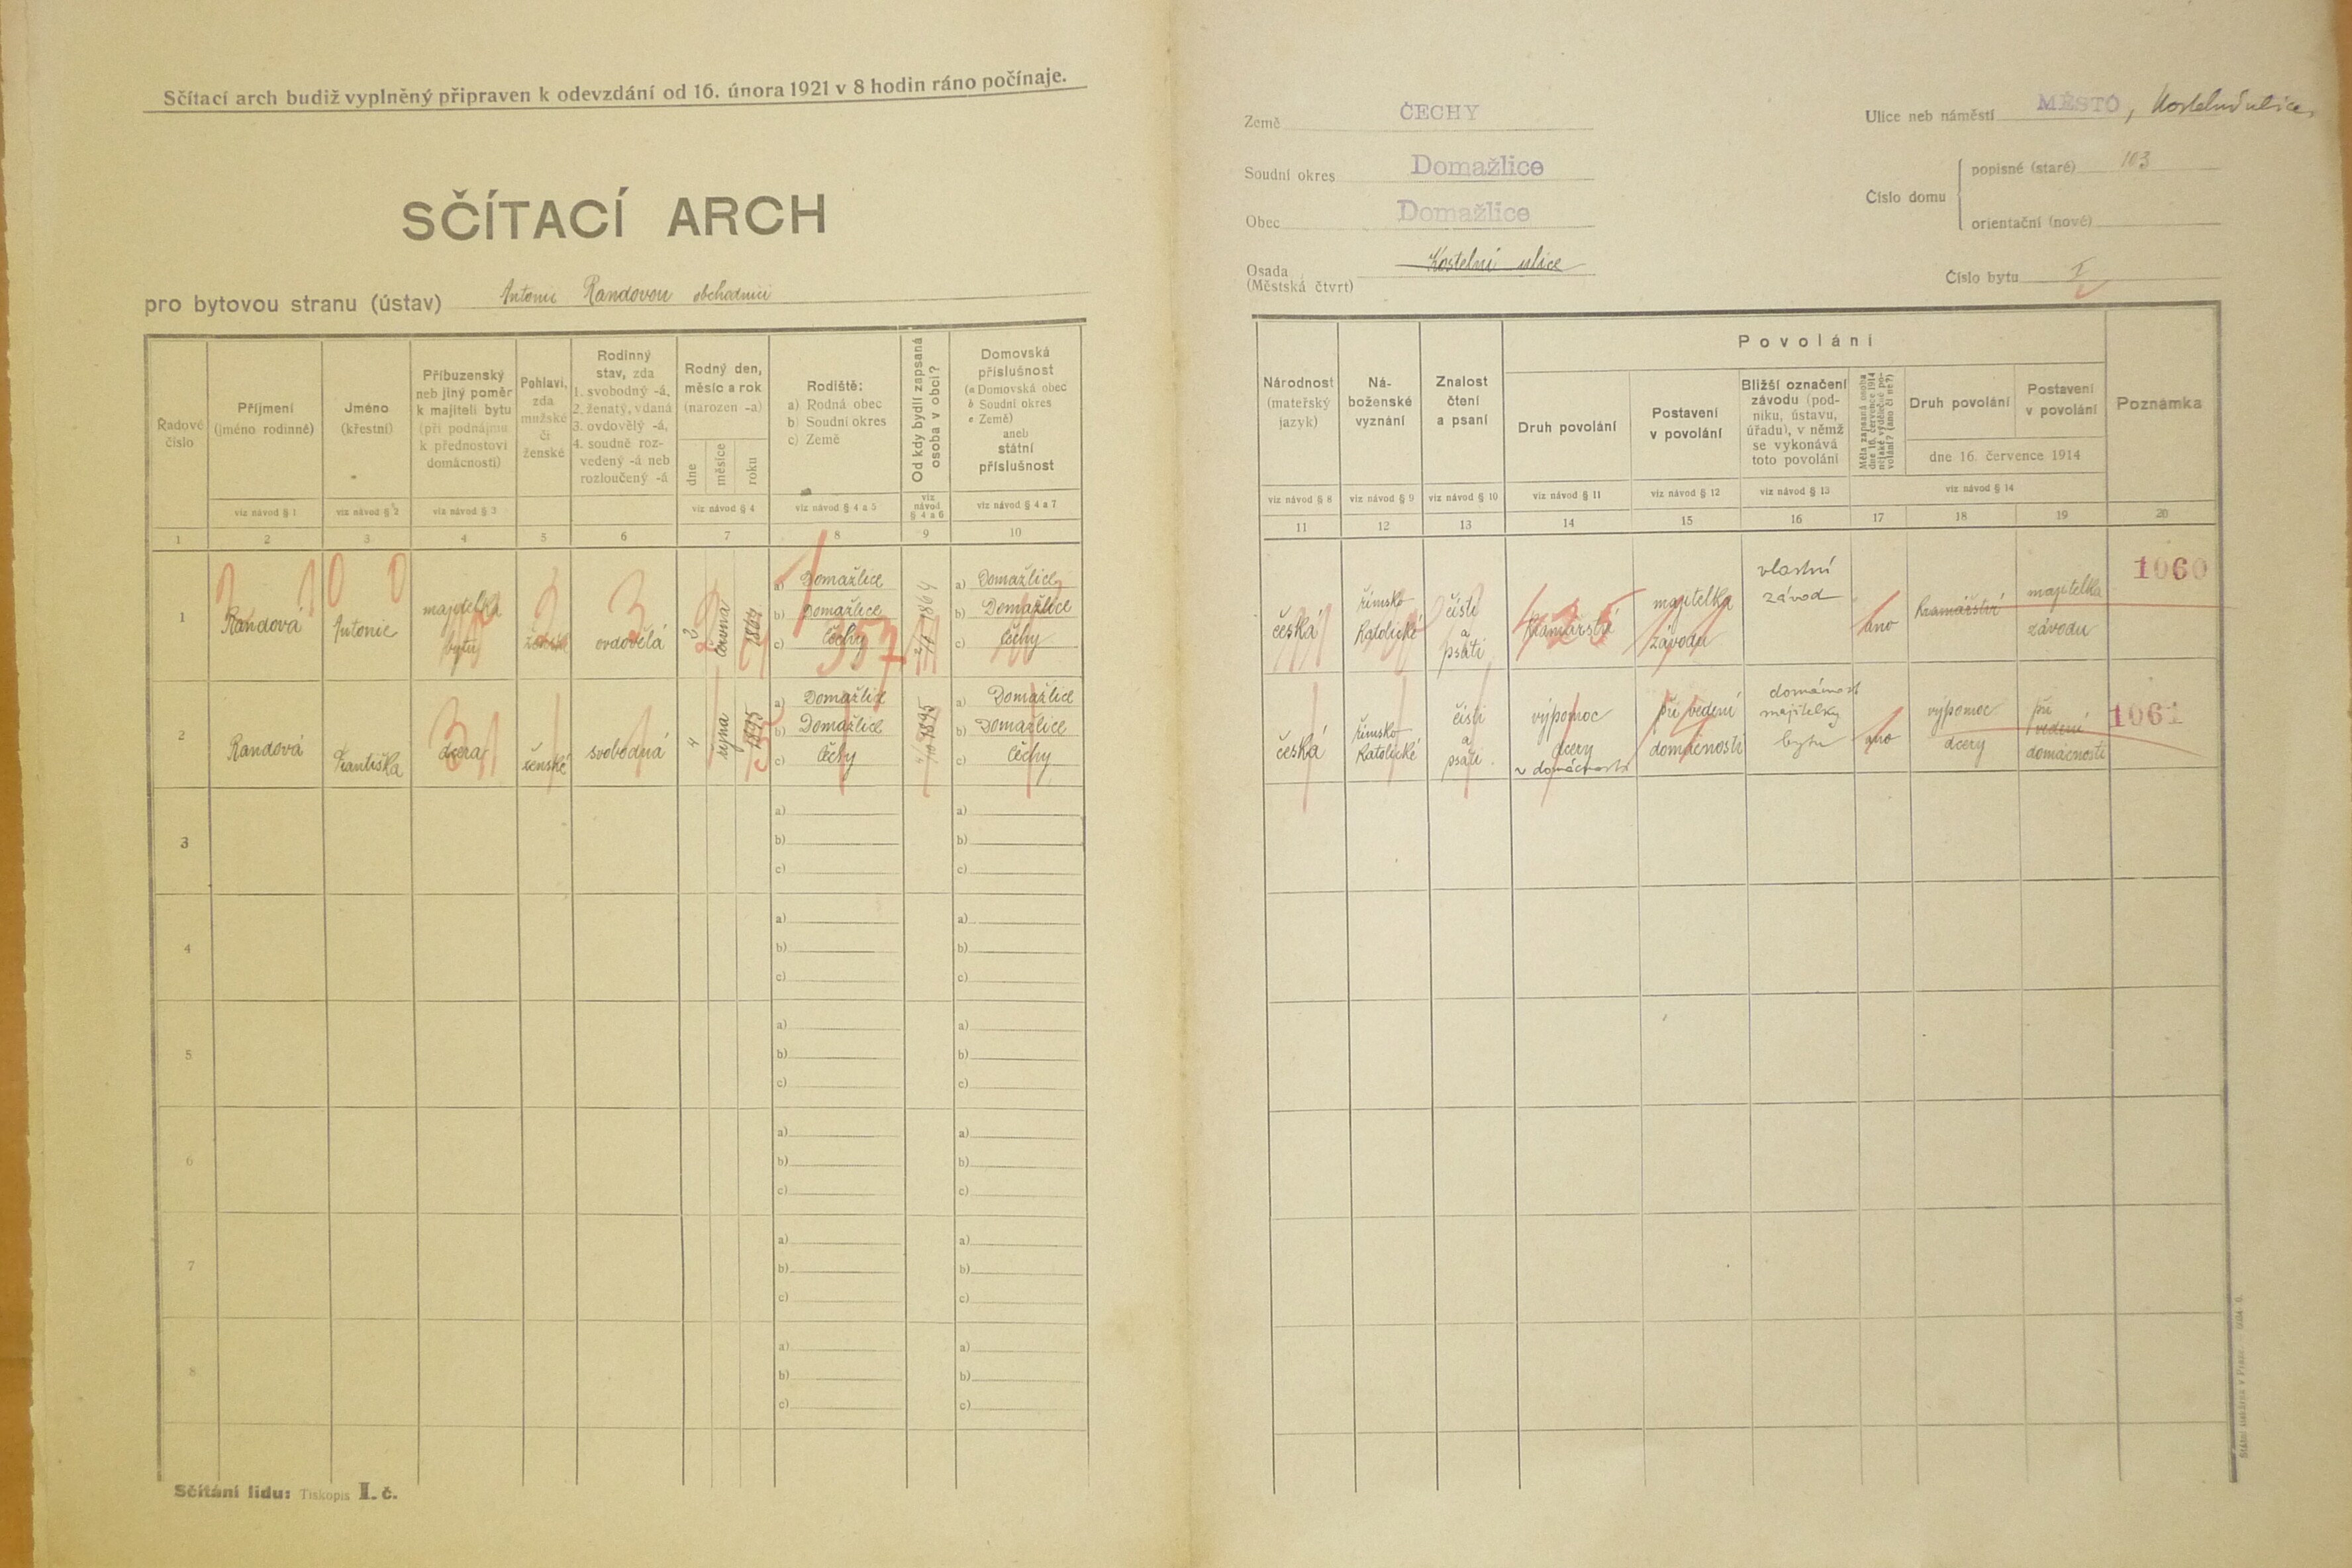 Sčítací arch budiž vyplněný připraven k odevzdání od 16. února 1921 v 8 hodin ráno počínaje.
SČÍTACÍ ARCH
pro bytovou stranu (ústav) Antonie Randovou obchodnici
Řadové číslo
Příjmení (jméno rodinné)
Jméno (křestní)
Příbuzenský neb jiný poměr k majiteli bytu (při podnájmu k přednostovi domácnosti)
Pohlaví, zda mužské či ženské
Rodinný stav, zda 1. svobodný -á, 2. ženatý, vdaná 3. ovdovělý -á, 4. soudně rozvedený -á neb rozloučený -á
Rodný den, měsíc a rok (narozen -a)
dne
měsíce
roku
Rodiště:
a) Rodná obec
b) Soudní okres
c) Země
Od kdy bydlí zapsaná osoba v obci?
Domovská příslušnost
(a Domovská obec
b Soudní okres
c Země)
aneb
státní příslušnost
viz návod § 1
viz návod § 2
viz návod § 3
viz návod § 4
viz návod § 4 a 5
viz návod § 4 a 6
viz návod § 4 a 7
1 2 3 4 5 6 7 8 9 10
1 Randová Antonie majitelka bytu ženské ovdovělá 2 června 1864
a) Domažlice
b) Domažlice
c) Čechy
1864
a) Domažlice
b) Domažlice
c) Čechy
2 Randová Františka dcera ženské svobodná 4 října 1895
a) Domažlice
b) Domažlice
c) Čechy
1895
a) Domažlice
b) Domažlice
c) Čechy
3
a) a)
b) b)
c) c)
4
a) a)
b) b)
c) c)
5
a) a)
b) b)
c) c)
6
a) a)
b) b)
c) c)
7
a) a)
b) b)
c) c)
8
a) a)
b) b)
c) c)
Sčítání lidu: Tiskopis I. č.
Země ČECHY
Soudní okres Domažlice
Obec Domažlice
Osada (Městská čtvrt) Kostelní ulice
Ulice neb náměstí MĚSTO, Kostelní ulice
Číslo domu
popisné (staré) 103
orientační (nové)
Číslo bytu I
Národnost (mateřský jazyk)
Náboženské vyznání
Znalost čtení a psaní
Povolání
Druh povolání
Postavení v povolání
Bližší označení závodu (podniku, ústavu, úřadu), v němž se vykonává toto povolání
Měla zapsaná osoba dne 16. července 1914 nějaké výdělečné povolání? (ano či ne?)
Druh povolání
Postavení v povolání
dne 16. července 1914
Poznámka
viz návod § 8
viz návod § 9
viz návod § 10
viz návod § 11
viz návod § 12
viz návod § 13
viz návod § 14
11 12 13 14 15 16 17 18 19 20
česká římsko katolické čísti a psáti kramářství majitelka závodu vlastní závod ano kramářství majitelka závodu 1060
česká římsko katolické čísti a psáti výpomoc dcery v domácnosti při vedení domácnosti domácnost majitelky bytu ano výpomoc dcery při vedení domácnosti 1061